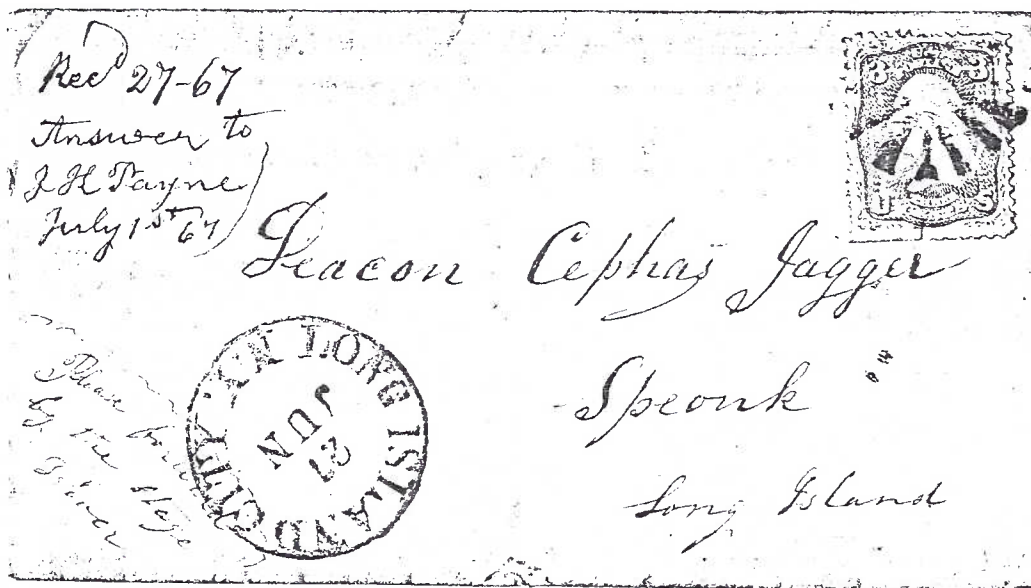 Recd 27-67
Answer to
J H Payne
July 1st 67
3 3
U S
Deacon Cephas Jagger
Speonk
Long Island
LONG ISLAND CITY N.Y.
JUN
27
Please
by the stage
Driver